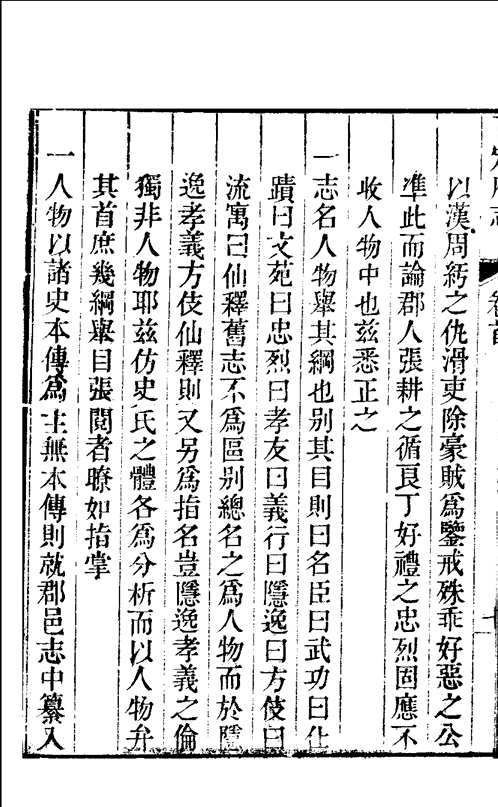 以漢周紆之仇滑吏除豪賊爲鑒戒殊乖好惡之公
準此而論郡人張耕之循良丁好禮之忠烈固應不
收人物中也兹悉正之
一志名人物舉其綱也别其目則曰名臣曰武功曰仕
蹟曰文苑曰忠烈曰孝友曰義行曰隱逸曰方伎曰
流寓曰仙釋舊志不爲區别總名之爲人物而於隱
逸孝義方伎仙釋則又另爲指名豈隱逸孝義之倫
獨非人物耶兹仿史氏之體各爲分析而以人物弁
其首庶幾綱舉目張閱者瞭如指掌
一人物以諸史本傳爲主無本傳則就郡邑志中纂入